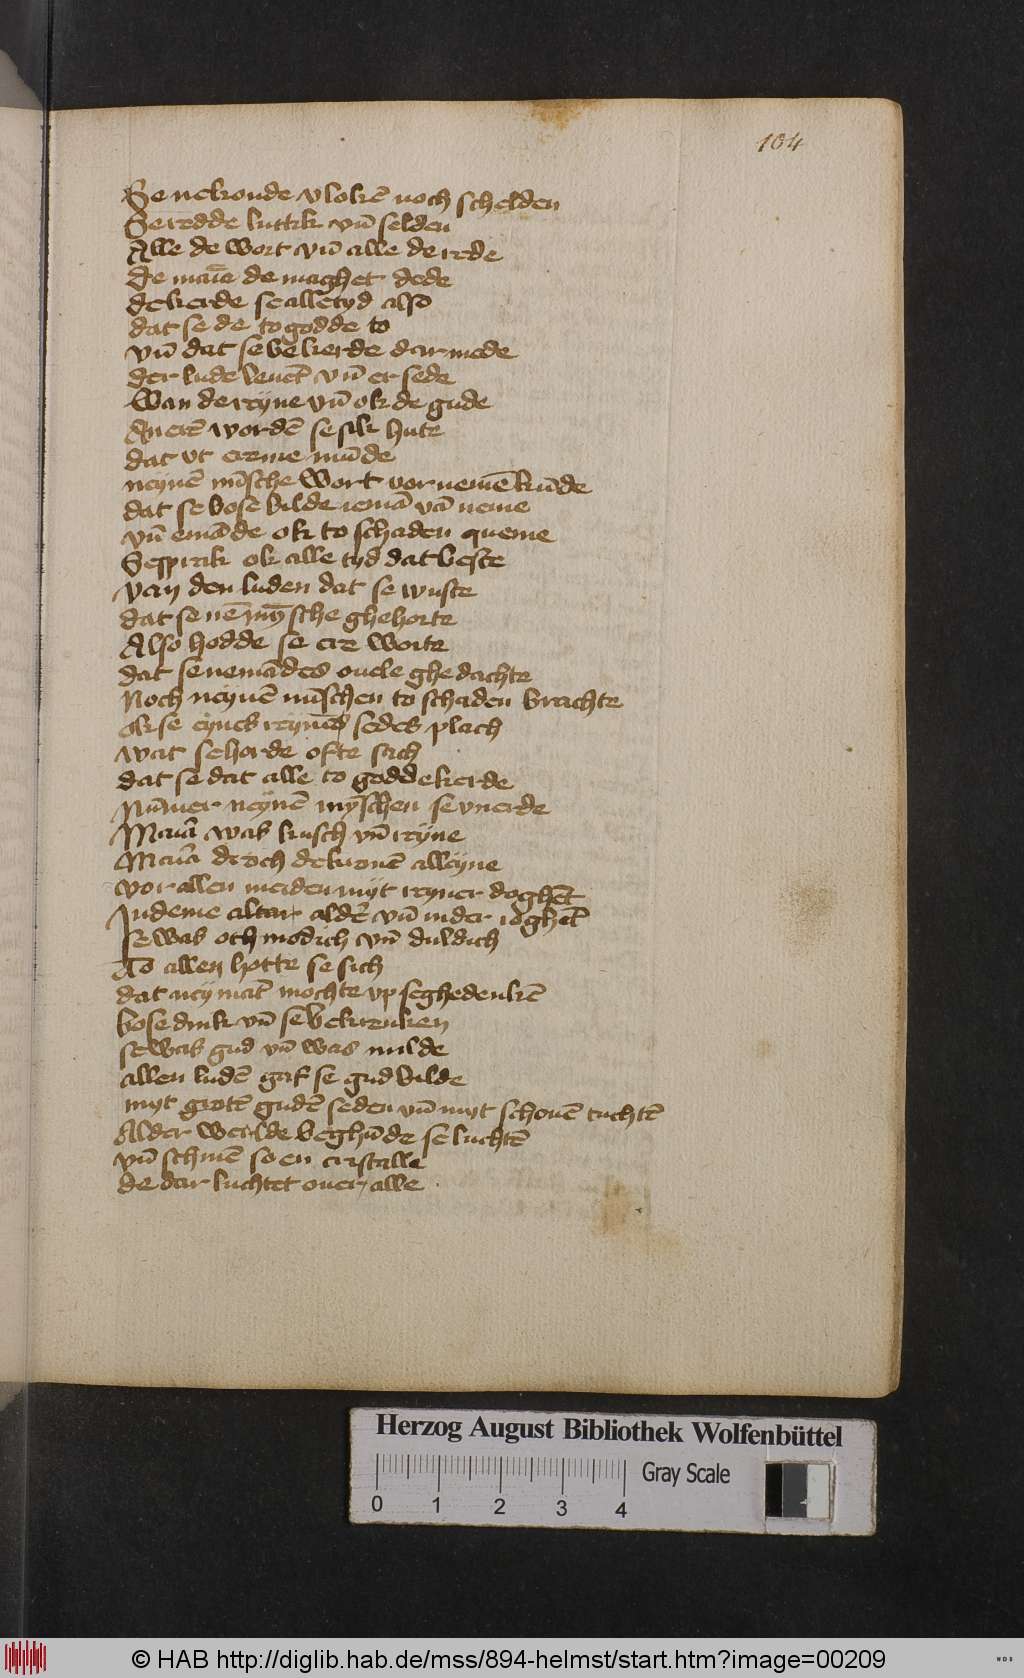 104
Se nekonde vlokē noch schelden
Se redde luttik vn̄ selden
Alle de wort vn̄ alle de rede
de man̄e de maghet dede
de kerde se alletyd also
dat se de to godde to
vn̄ dat se bekerde dar mede
der lude leuēt vn̄ er sede
Wan de reyne vn̄ ok de gude
An erē wordē se sik hute
dat vtereme mūde
neynē mīsche wort vornemē kūde
dat se bose bilde iemā vā neme
vn̄ emāde ok to schaden queme
Se sprak ok alle tyd dat beste
van den luden dat se wuste
dat se nē mȳsche ghehorte
Also hodde se ere worte
dat se nemādes ouele ghedachte
Noch neynē mīschen to schaden brachte
ok se eynes reynēs sedes plach
wat se horde ofte sach
dat se dat alle to godde kerde
Nūmer neynē mȳschen se vnerde
Maria was kusch vn̄ reyne
Maria droch de kronē alleyne
vor allen meiden myt reyner doghēt
In deme altar aldē vn̄ in der ioghēt
se was othmodich vn̄ duldich
To allen hotte se sich
dat neymāt mochte vp se ghedenkē
bose dink vn̄ se bekrenken
se was gud vn̄ was milde
allen ludē gaf se gud bilde
myt grotē gudē seden vn̄ myt schonē tuchtē
Alder werlde beghūde se luchtē
vn̄ schinē so en cristalle
de dar luchtet ouer alle
Herzog August Bibliothek Wolfenbüttel
Gray Scale
0 1 2 3 4
© HAB http://diglib.hab.de/mss/894-helmst/start.htm?image=00209